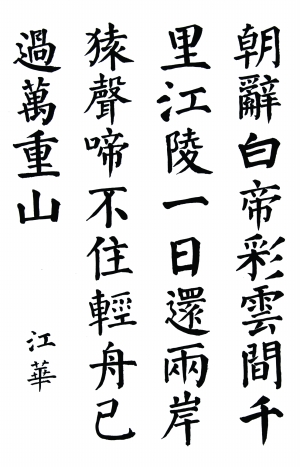 朝辭白帝彩雲間千
里江陵一日還兩岸
猿聲啼不住輕舟已
過萬重山
江華